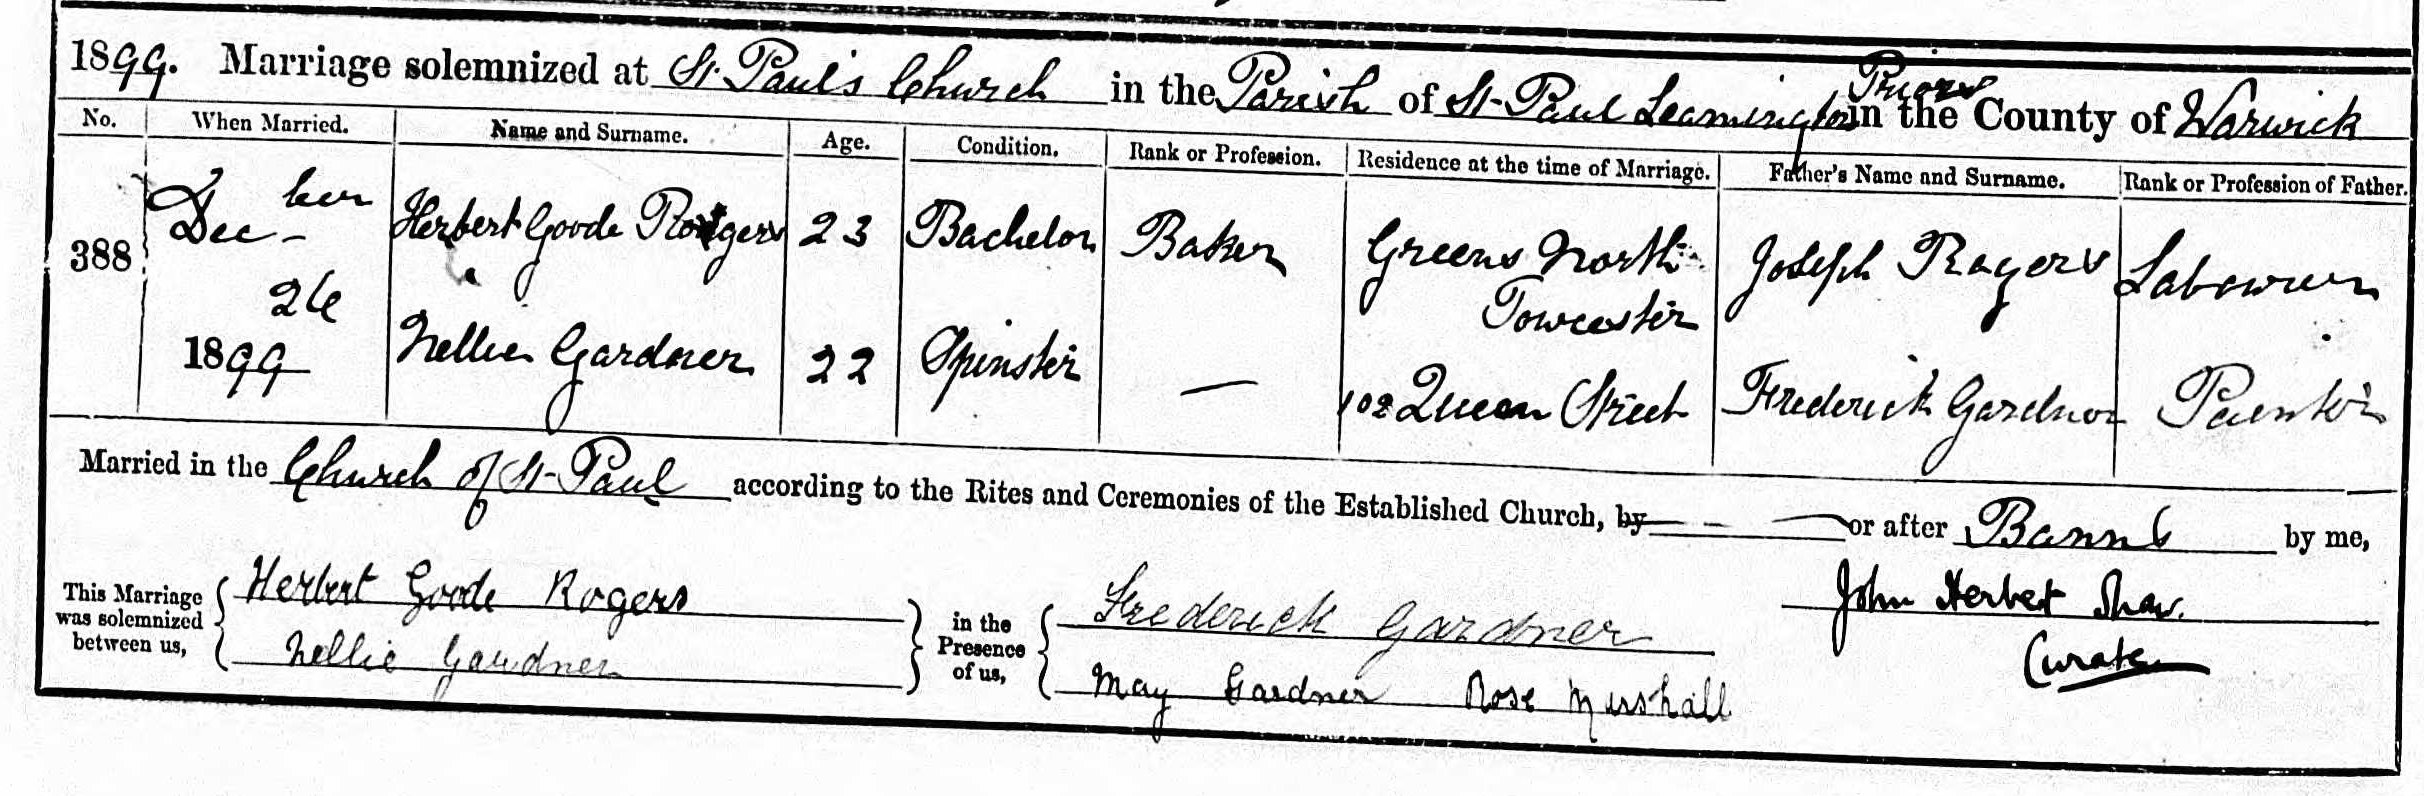 1899. Marriage solemnized at St. Paul's Church in the Parish of St. Paul Leamington Priors in the County of Warwick
No. When Married. Name and Surname. Age. Condition. Rank or Profession. Residence at the time of Marriage. Father's Name and Surname. Rank or Profession of Father.
388 Decber 26 1899 Herbert Goode Rogers 23 Bachelor Baker Greens Norton Towcester Joseph Rogers Labourer
Nellie Gardner 22 Spinster — 102 Queen Street Frederick Gardner Painter
Married in the Church of St. Paul according to the Rites and Ceremonies of the Established Church, by — or after Banns by me,
This Marriage was solemnized between us, Herbert Goode Rogers in the Presence of us, Frederick Gardner John Herbert Shaw.
Nellie Gardner May Gardner Rose Curate